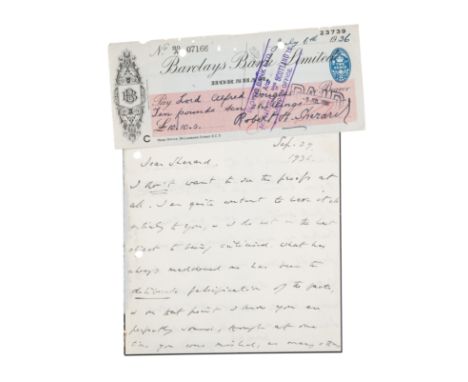 23739
No 33 07166 July 6th 1936
Barclays Bank Limited
HORSHAM
Pay Lord Alfred Douglas
Ten pounds ten shillings
£10.10.0. Robert H. Sherard
C
Sep. 27
1936
Dear Sherard,
I don't want to see the proofs at
all. I am quite content to leave it all
entirely to you, & I do not in the least
object to being criticised. What has
always maddened me has been the
deliberate falsification of the facts,
& on that point I know you are
perfectly sound, though at one
time you were misled, as many